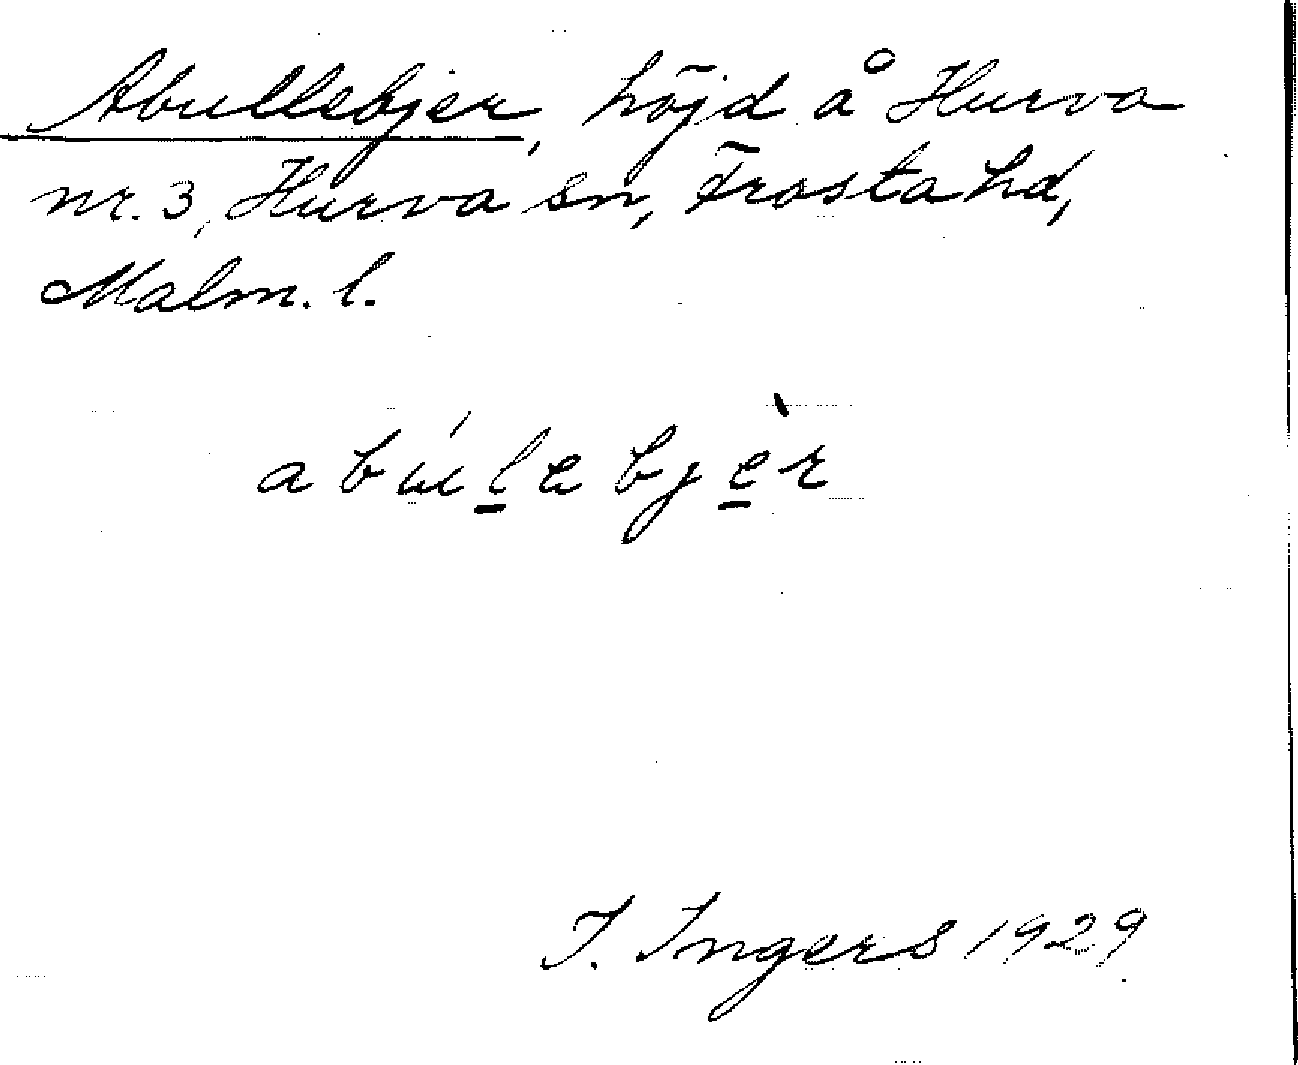 Abullebjer, höjd å Hurva
nr. 3, Hurva sn, Frosta hd,
Malm. l.
abúlebjèr
I. Ingers 1929